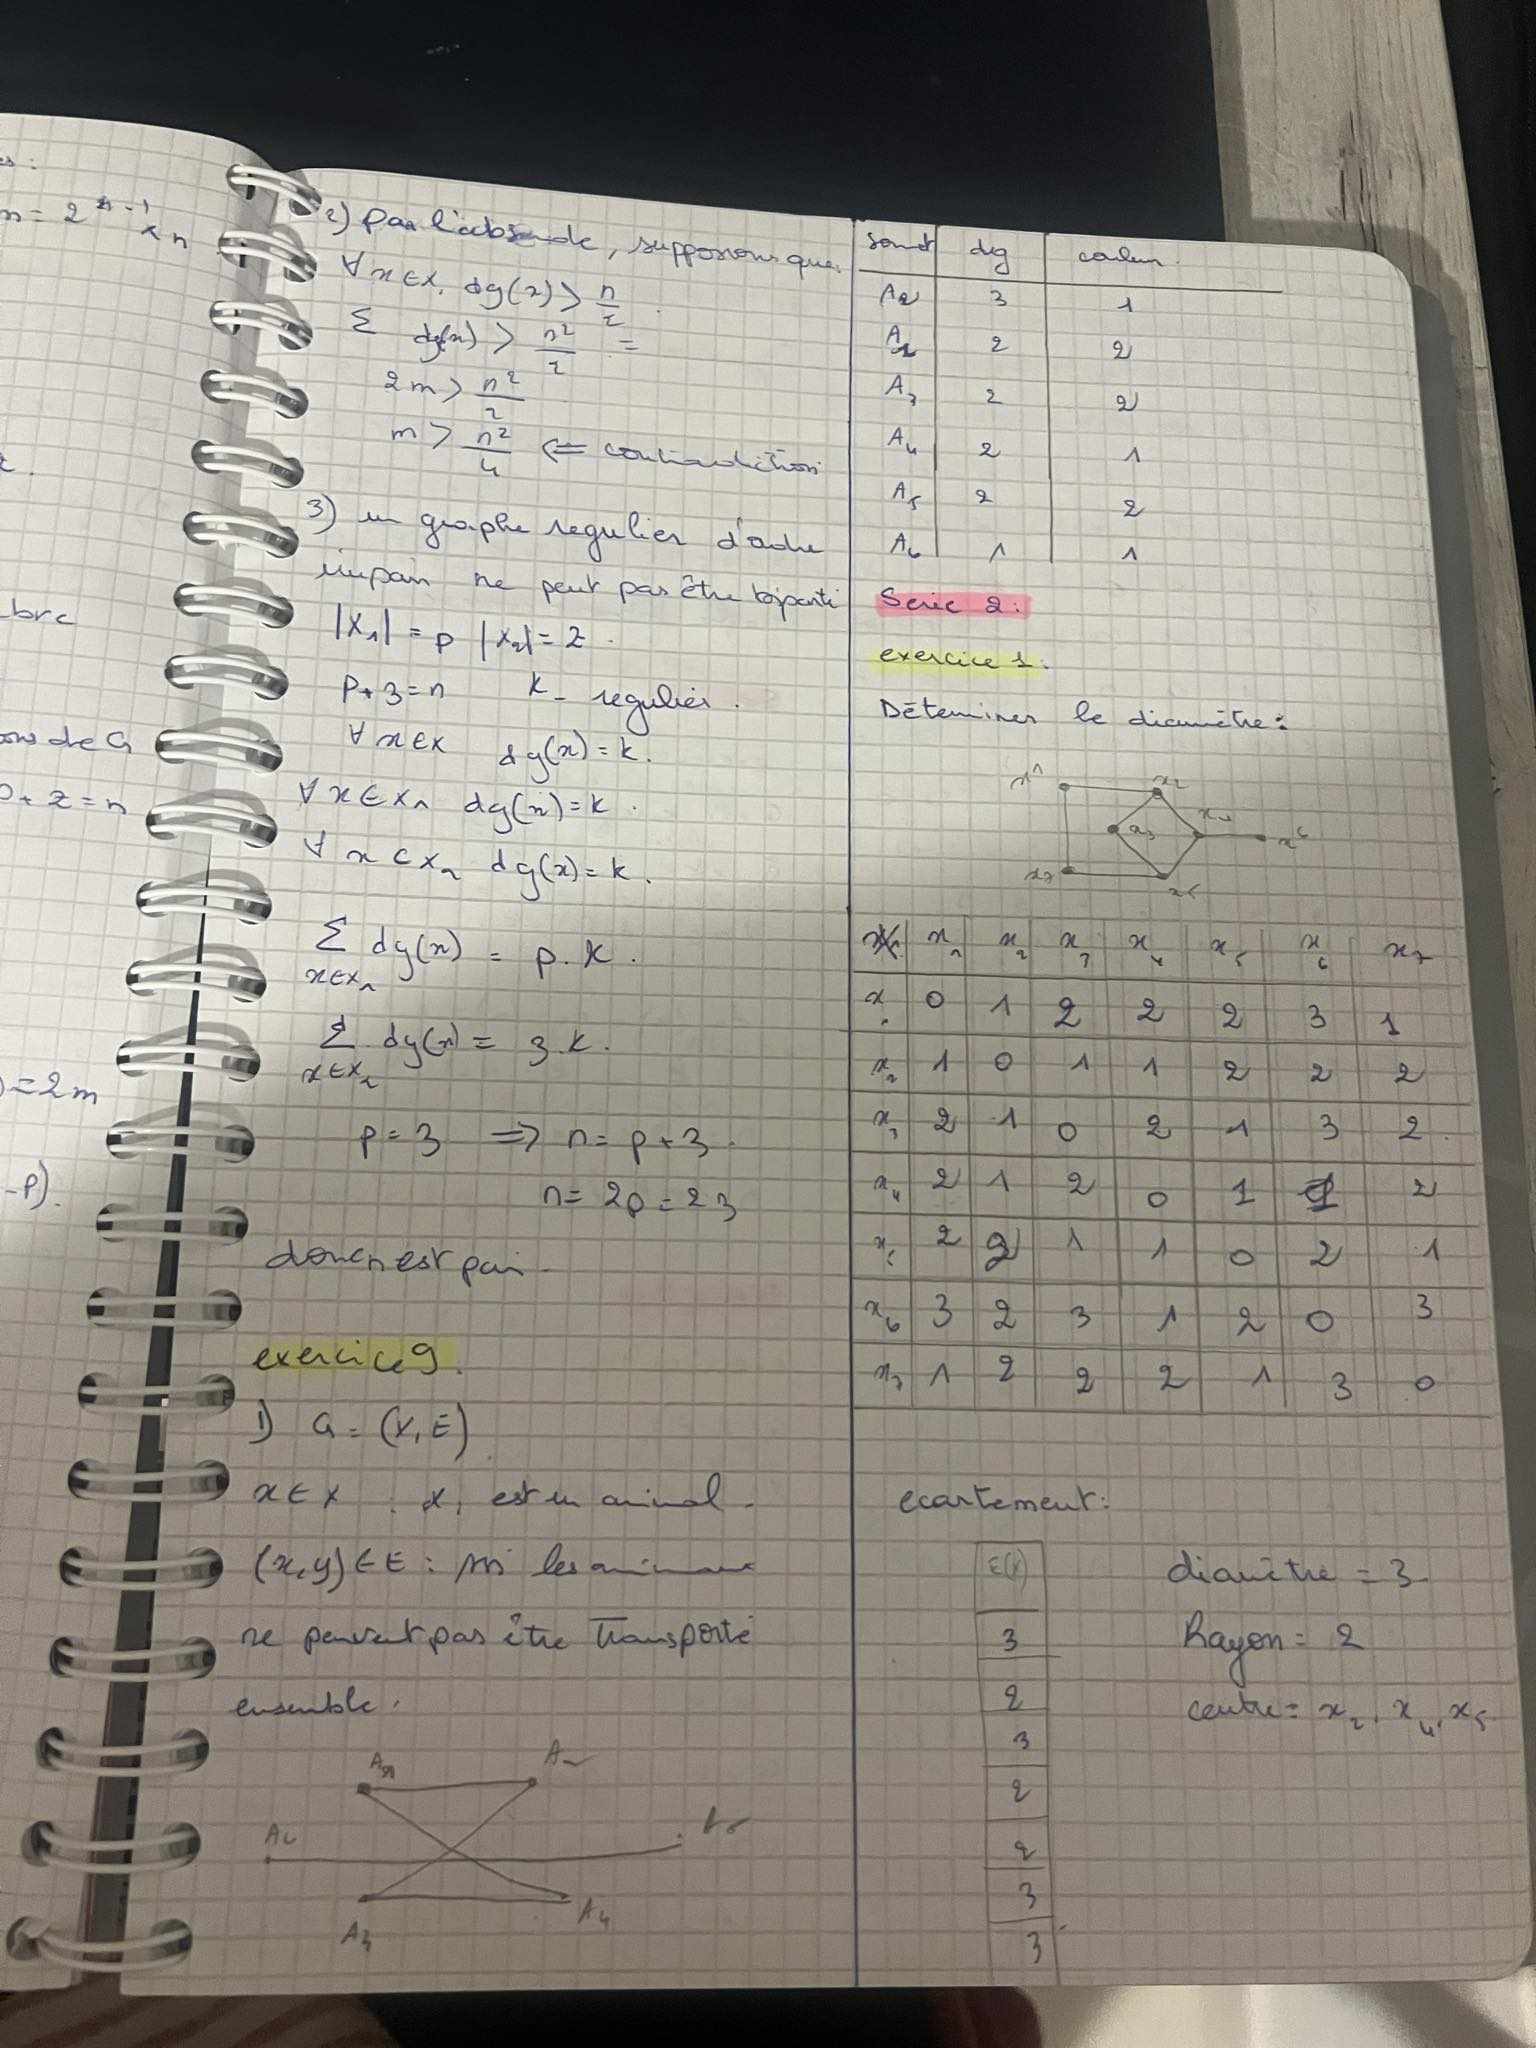 es :
m = 2^(n-1) x n
bre
ons de G
p + z = n
) = 2m
-p).
2) Par l'absurde, supposons que
∀ x ∈ X, dg(x) > n/2
Σ dg(x) > n²/2 =
2m > n²/2
m > n²/4 <= contradiction
3) un graphe regulier d'ordre
impair ne peut pas être biparti
|X₁| = p |X₂| = z.
p + z = n k - regulier.
∀ x ∈ X dg(x) = k.
∀ x ∈ X₁ dg(x) = k.
∀ x ∈ X₂ dg(x) = k.
Σ dg(x) = p . k.
x ∈ X₁
Σ dg(x) = z . k.
x ∈ X₂
p = z => n = p + z.
n = 2p = 2z
donc n est pair.
exercice 9.
1) G = (X, E)
x ∈ X : x, est un animal.
(x, y) ∈ E : ssi les animaux
ne peuvent pas être transporté
ensemble.
A₁ A₂
A₆ A₅
A₃ A₄
somt dg couleur
A₂ 3 1
A₁ 2 2
A₃ 2 2
A₄ 2 1
A₅ 2 2
A₆ 1 1
Serie 2 :
exercice 1 :
Déterminer le diamètre :
x1 x2
x3 x4 x6
x7 x5
x₁ x₂ x₃ x₄ x₅ x₆ x₇
x₁ 0 1 2 2 2 3 1
x₂ 1 0 1 1 2 2 2
x₃ 2 1 0 2 1 3 2
x₄ 2 1 2 0 1 1 2
x₅ 2 2 1 1 0 2 1
x₆ 3 2 3 1 2 0 3
x₇ 1 2 2 2 1 3 0
ecartement :
E(x)
3
2
3
2
2
3
3
diamètre = 3
Rayon = 2
centre = x₂, x₄, x₅